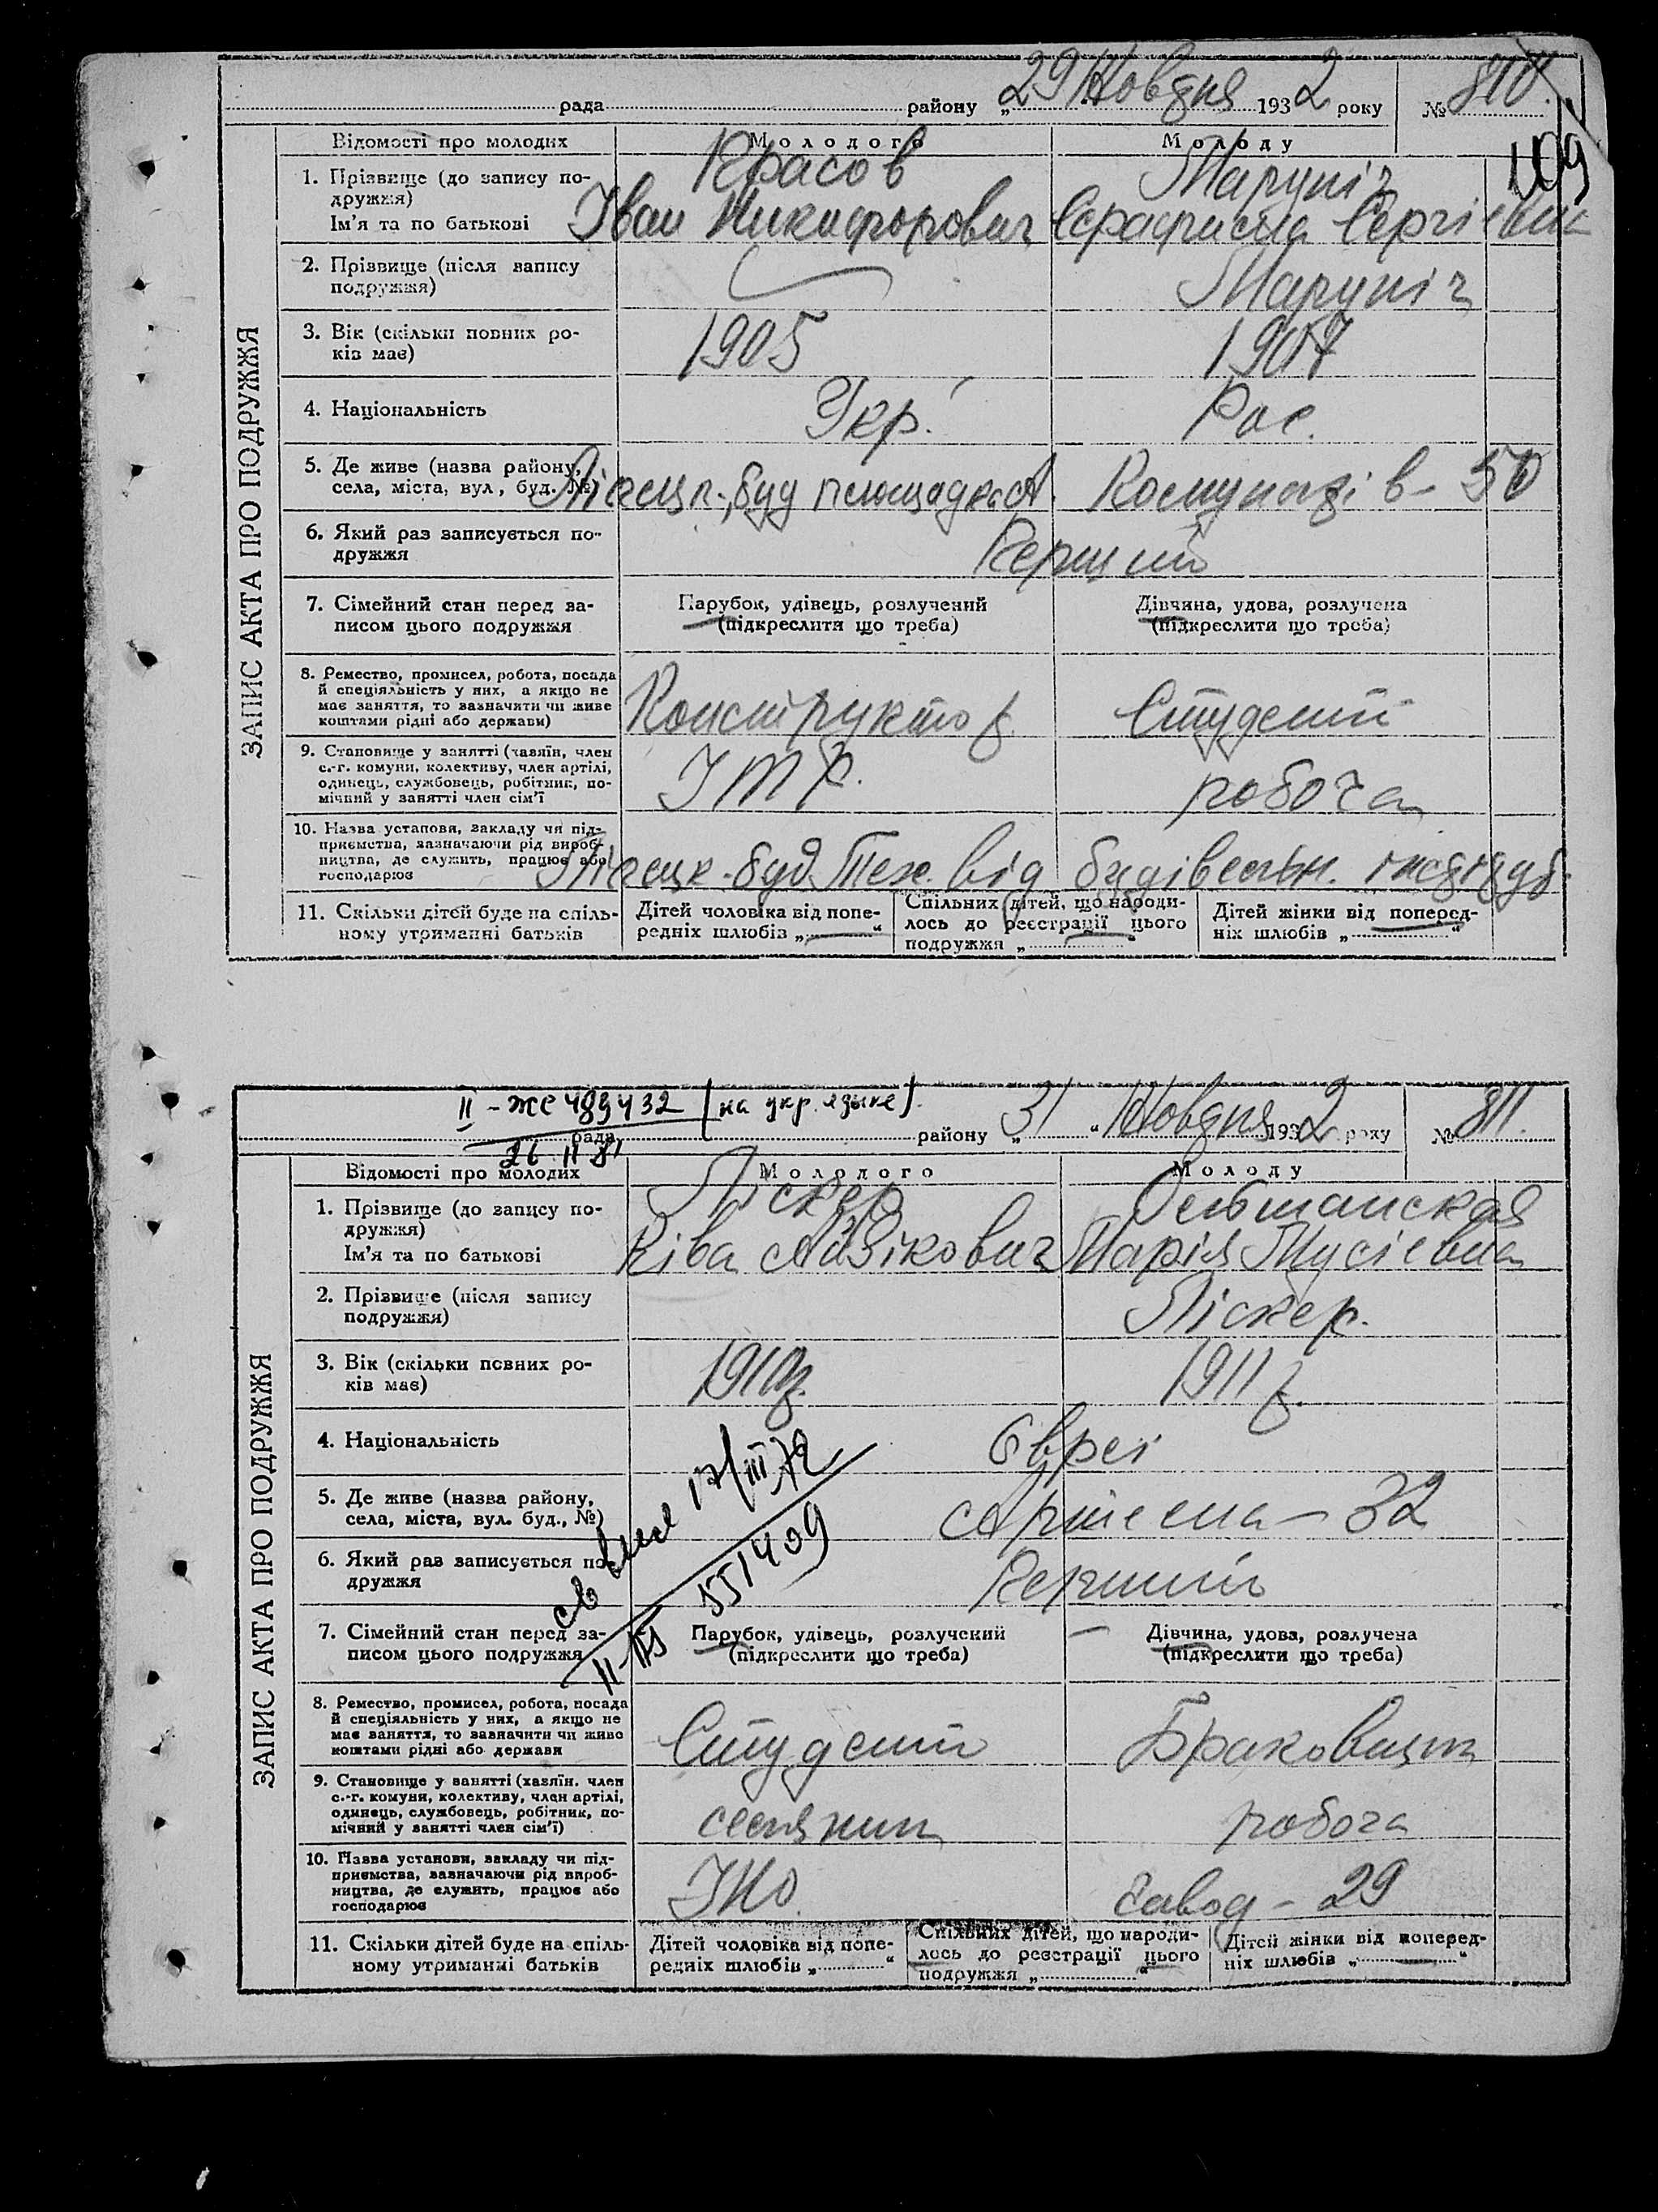 рада району „29" Жовтня 1932 року № 810.
109
ЗАПИС АКТА ПРО ПОДРУЖЖЯ
Відомості про молодих Молодого Молоду
1. Прізвище (до запису по-
дружжя)
Красов
Ім'я та по батькові
Іван Никифорович Серафима Сергіевна
2. Прізвище (після запису
подружжя)
3. Вік (скільки повних ро-
ків має)
1905 1907
4. Національність Укр. Рос.
5. Де живе (назва району,
села, міста, вул., буд. №)
буд площадка Комунарів - 50
6. Який раз записується по-
дружжя
Перший
7. Сімейний стан перед за-
писом цього подружжя
Парубок, удівець, розлучений
(підкреслити що треба)
Дівчина, удова, розлучена
(підкреслити що треба)
8. Ремество, промисел, робота, посада
й спеціяльність у них, а якщо не
має заняття, то зазначити чи живе
коштами рідні або держави)
Конструктор Студент
9. Становище у занятті (хазяїн, член
с.-г. комуни, колективу, член артілі,
одинець, службовець, робітник, по-
мічний у занятті член сім'ї
ІТР. робоча
10. Назва установи, закладу чи під-
приємства, зазначаючи рід вироб-
ництва, де служить, працює або
господарює
буд Тех. від будівельн. інститут.
11. Скільки дітей буде на спіль-
ному утриманні батьків
Дітей чоловіка від попе-
редніх шлюбів „ — "
Спільних дітей, що народи-
лось до реєстрації цього
подружжя „ — "
Дітей жінки від поперед-
ніх шлюбів „ — "
II-ЖС 489432 (на укр. языке).
26 II 81
рада району „31" Жовтня 1932 року № 811.
ЗАПИС АКТА ПРО ПОДРУЖЖЯ
Відомості про молодих Молодого Молоду
1. Прізвище (до запису по-
дружжя)
Піскер Ольшанская
Ім'я та по батькові
Ківа Айзікович Марія Мусіевна
2. Прізвище (після запису
подружжя)
Піскер.
3. Вік (скільки повних ро-
ків має)
1910р. 1911р.
4. Національність Євреі
5. Де живе (назва району,
села, міста, вул. буд., №)
Артема - 32
17/III 72
551409
6. Який раз записується по-
дружжя
Перший
7. Сімейний стан перед за-
писом цього подружжя
Парубок, удівець, розлучений
(підкреслити що треба)
Дівчина, удова, розлучена
(підкреслити що треба)
8. Ремество, промисел, робота, посада
й спеціяльність у них, а якщо не
має заняття, то зазначити чи живе
коштами рідні або держави
Студент Браковщиц
9. Становище у занятті (хазяїн. член
с.-г. комуни, колективу, член артілі,
одинець, службовець, робітник, по-
мічний у занятті член сім'ї)
селянин робоча
10. Назва установи, закладу чи під-
приємства, зазначаючи рід вироб-
ництва, де служить, працює або
господарює
ІНО. Завод - 29
11. Скільки дітей буде на спіль-
ному утриманні батьків
Дітей чоловіка від попе-
редніх шлюбів „ "
Спільних дітей, що народи-
лось до реєстрації цього
подружжя „ "
Дітей жінки від поперед-
ніх шлюбів „ — "